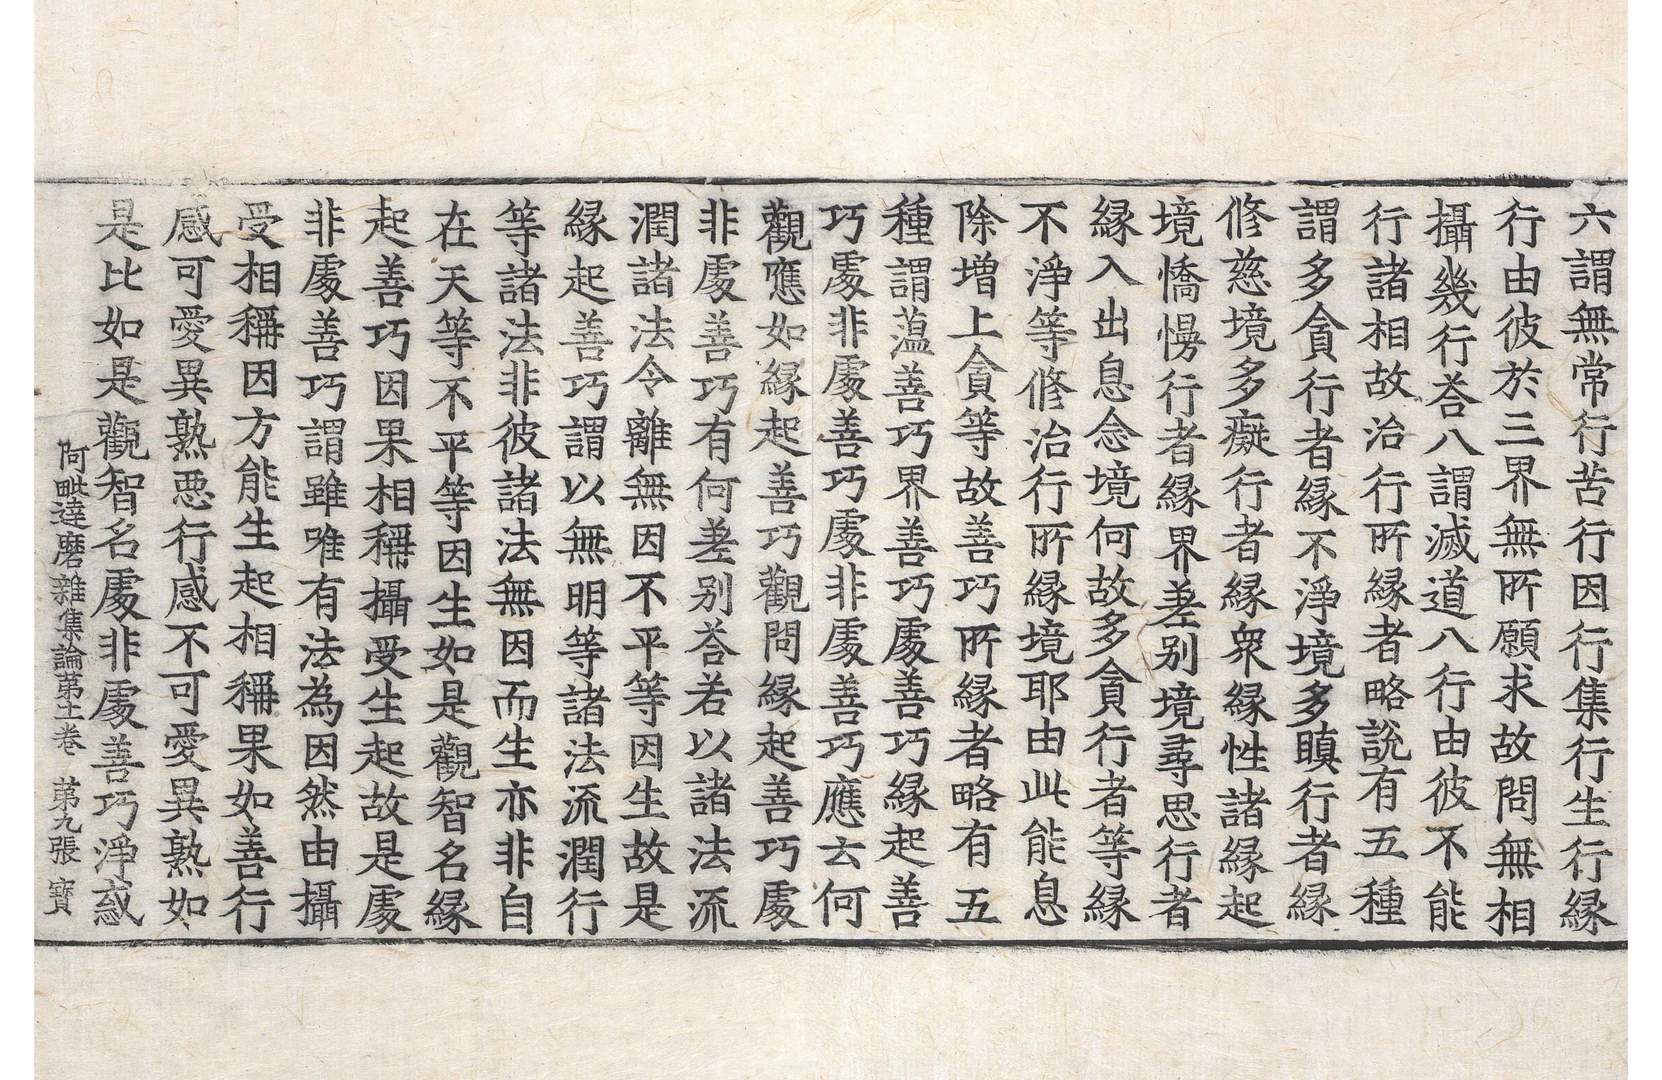 六謂無常行苦行因行集行生行緣
行由彼於三界無所願求故問無相
攝幾行荅八謂滅道八行由彼不能
行諸相故治行所緣者略說有五種
謂多貪行者緣不淨境多瞋行者緣
修慈境多癡行者緣衆緣性諸緣起
境憍慢行者緣界差別境尋思行者
緣入出息念境何故多貪行者等緣
不淨等修治行所緣境耶由此能息
除增上貪等故善巧所緣者略有五
種謂薀善巧界善巧處善巧緣起善
巧處非處善巧處非處善巧應云何
觀應如緣起善巧觀問緣起善巧處
非處善巧有何差別荅若以諸法流
潤諸法令離無因不平等因生故是
緣起善巧謂以無明等諸法流潤行
等諸法非彼諸法無因而生亦非自
在天等不平等因生如是觀智名緣
起善巧因果相稱攝受生起故是處
非處善巧謂雖唯有法為因然由攝
受相稱因方能生起相稱果如善行
感可愛異熟惡行感不可愛異熟如
是比如是觀智名處非處善巧淨惑
阿毗達磨雜集論第十一卷 第九張 寶